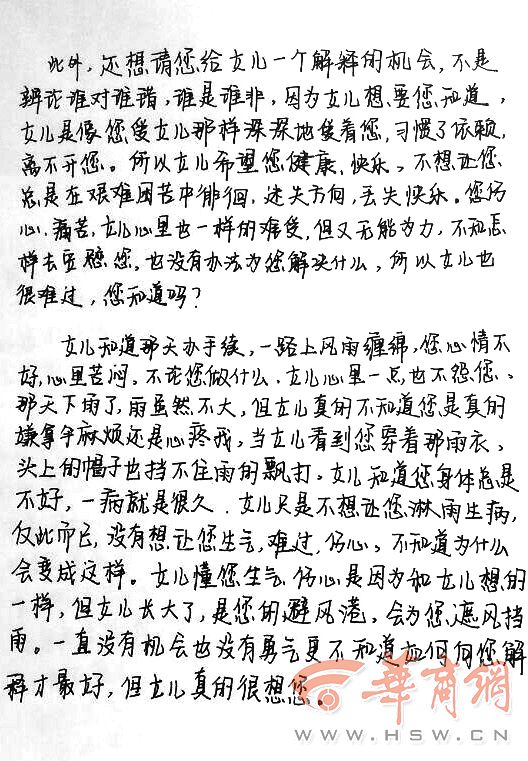 此外，还想请您给女儿一个解释的机会，不是
辨论谁对谁错，谁是谁非，因为女儿想要您知道，
女儿是像您爱女儿那样深深地爱着您，习惯了依赖，
离不开您。所以女儿希望您健康、快乐。不想让您
总是在艰难困苦中徘徊，迷失方向，丢失快乐。您伤
心、痛苦，女儿心里也一样的难受，但又无能为力，不知怎
样去安慰您，也没有办法为您解决什么，所以女儿也
很难过，您知道吗？
女儿知道那天办手续，一路上风雨缠绵，您心情不
好，心里苦闷，不论您做什么，女儿心里一点也不怨您、
那天下雨了，雨虽然不大，但女儿真的不知道您是真的
嫌拿伞麻烦还是心疼我，当女儿看到您穿着那雨衣、
头上的帽子也挡不住雨的飘打，女儿知道您身体总是
不好，一病就是很久．女儿只是不想让您淋雨生病，
仅此而已，没有想让您生气，难过，伤心。不知道为什么
会变成这样。女儿懂您生气、伤心是因为和女儿想的
一样，但女儿长大了，是您的避风港，会为您遮风挡
雨。一直没有机会也没有勇气更不知道如何向您解
释才最好，但女儿真的很想您。
华商网
WWW.HSW.CN